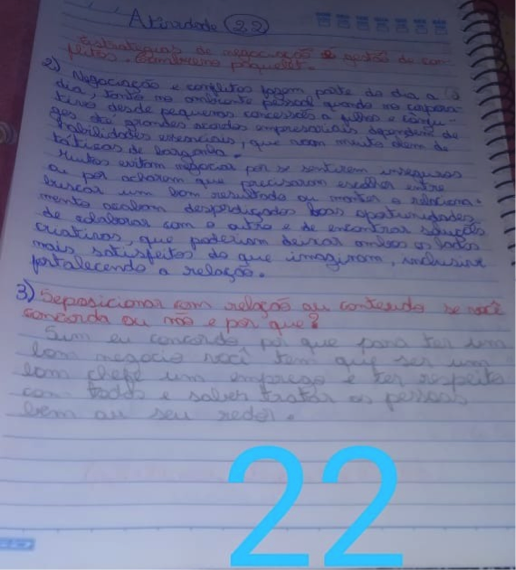 Atividade 22
Estratégias de negociação e gestão de con-
flitos.
2) Negociação e conflitos fazem parte do dia a
dia, tanto no ambiente pessoal quando no corpora-
tivo desde pequenas concessão a filhos e cônju-
ges até grandes acordos empresariais dependem de
habilidades essenciais, que voam muito além de
táticas de barganha.
Muitos evitam negociar por se sentirem inseguros
ou por acharem que precisaram escolher entre
buscar um bom resultado ou manter o relaciona-
mento acabam desperdiçados boas oportunidades
de colaborar com o outro e de encontrar soluções
criativas, que poderiam deixar ambos os lados
mais satisfeitos do que imaginam, inclusive
fortalecendo a relação.
3) Seposicionar com relação au conteudo se você
concorda ou não e por que?
Sim eu concordo, por que para ter um
bom negocio você tem que ser um
bom chefe um emprego e ter respeito
com todos e saber tratar as pessoas
bem au seu redor.
22